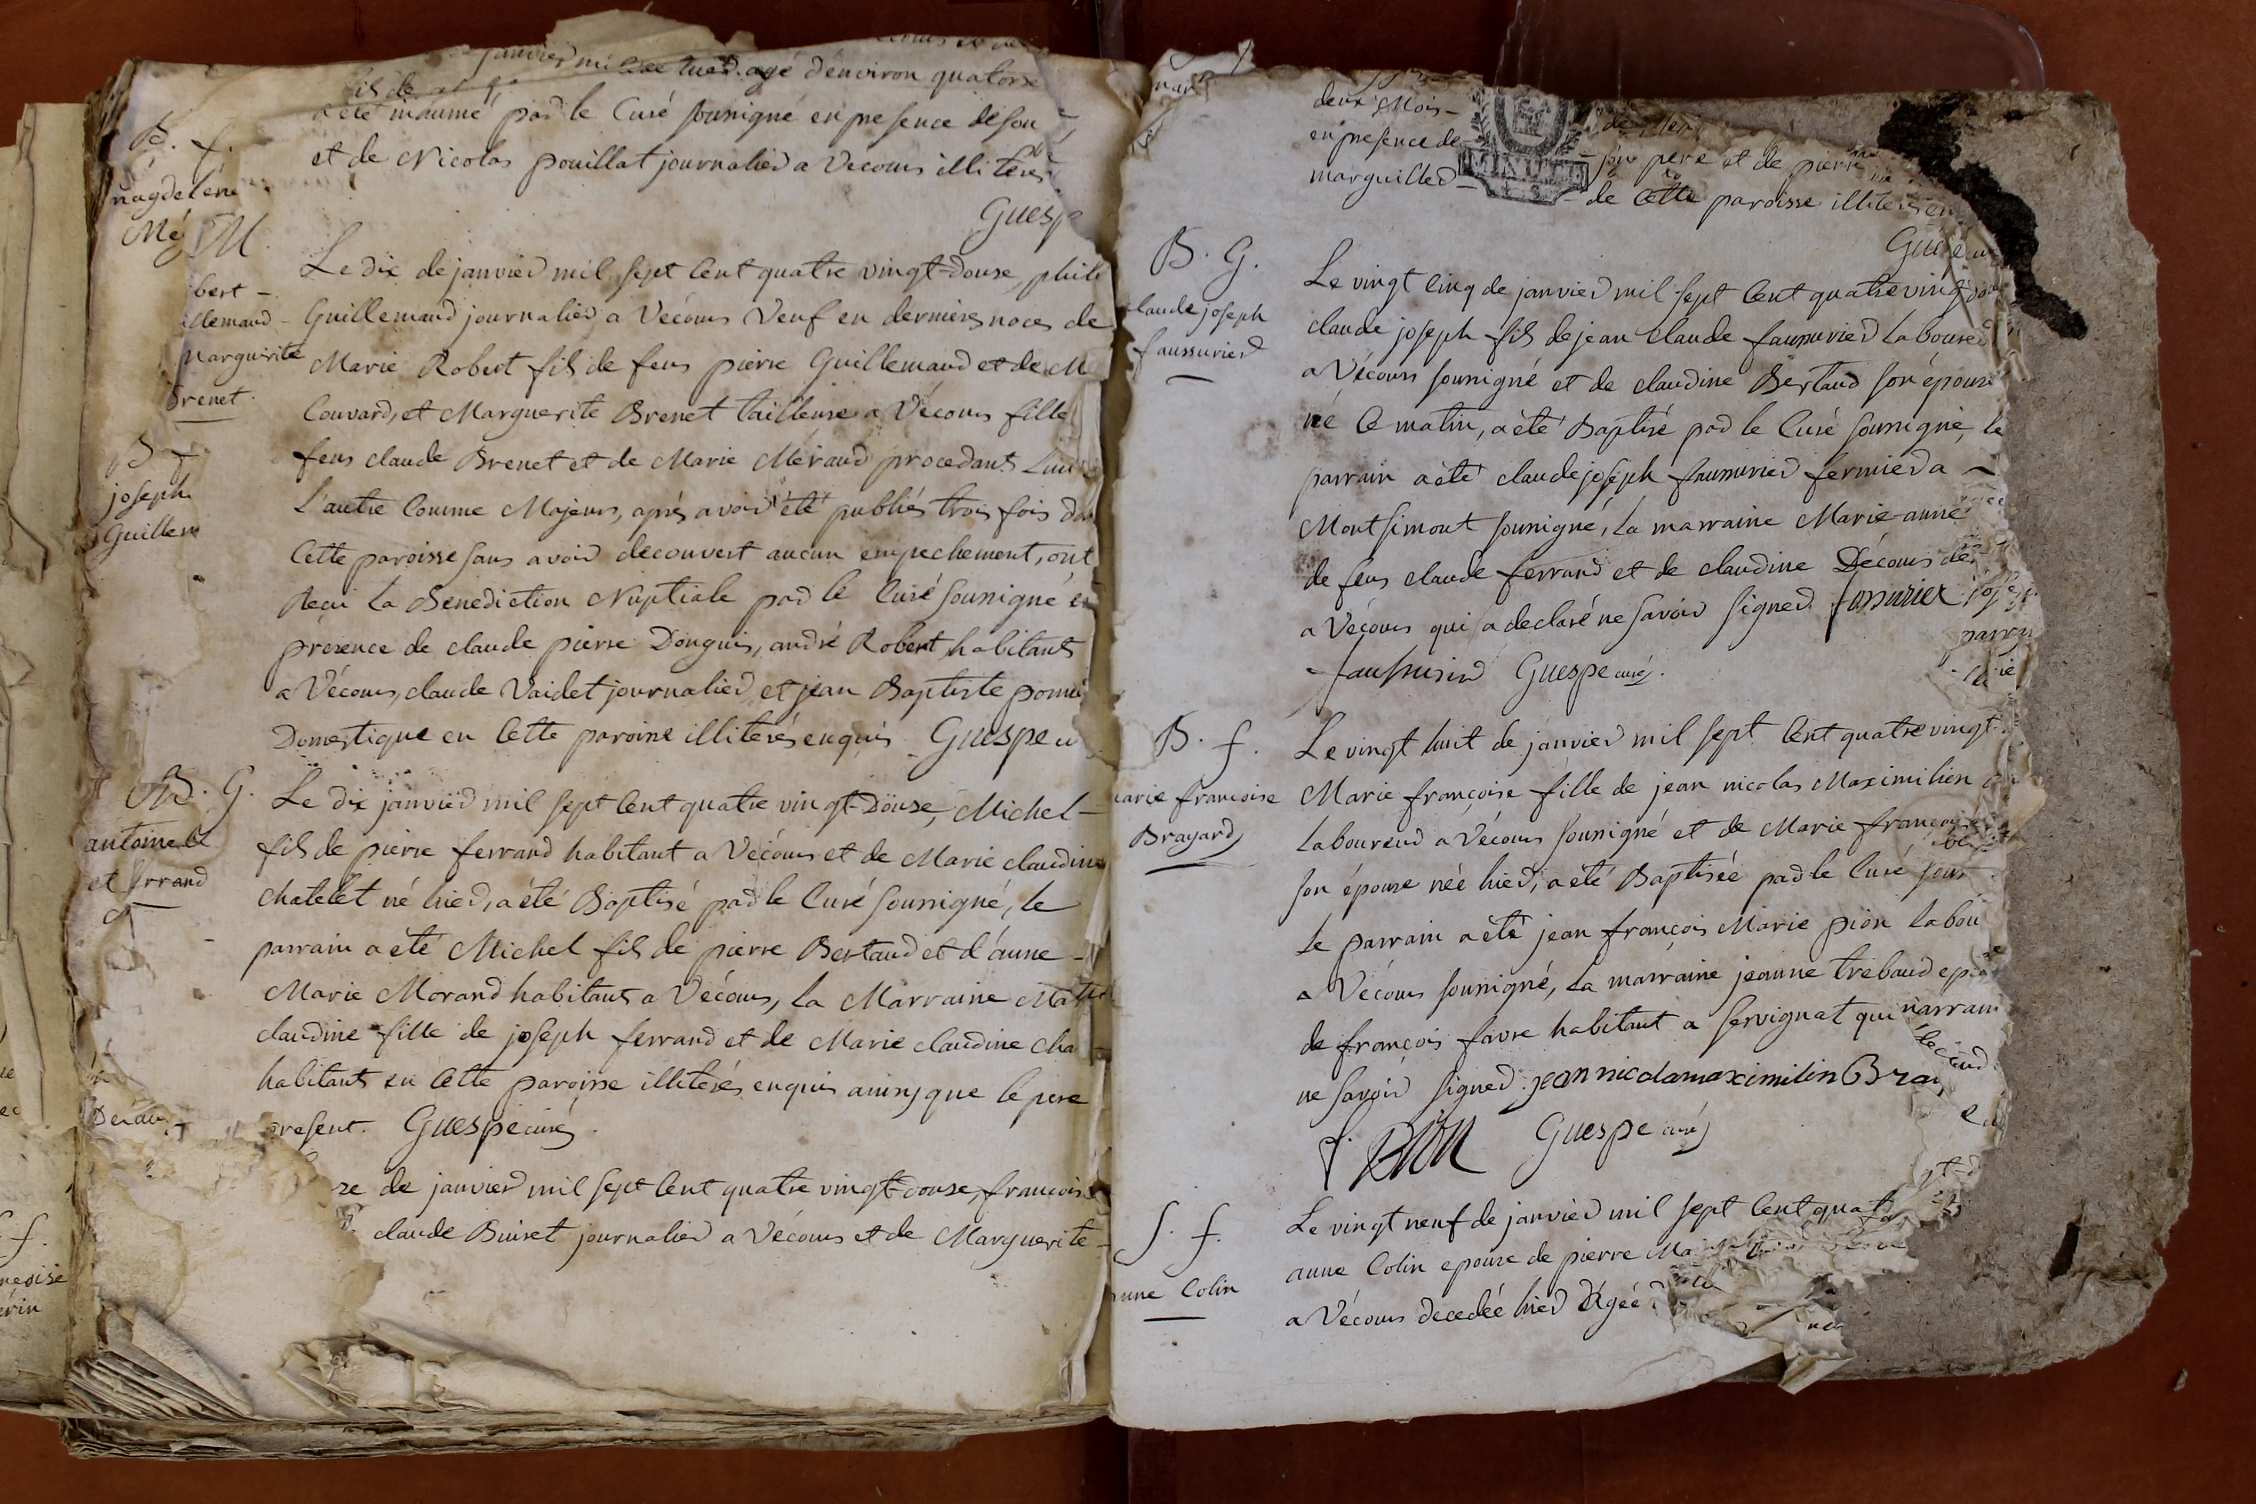 janvier mil
agé d'environ quatorze
fils de
a été inhumé par le Curé soussigné en presence de son
et de Nicolas pouillat journalier a Vecours illiterés
Guespe
B. f.
magdelene
M
Le dix de janvier mil sept Cent quatre vingt-douse, phili
Guillemaud journalier a Vécours Veuf en dernieres noces de
Marie Robert fils de feus pierre Guillemaud et de M
Couvard, et Marguerite Brenet tailleuse a Vécours fille
feus claude Brenet et de Marie Méraud procedants L'un
L'autre Comme Majeurs, aprés avoir été publiés trois fois da
Cette paroisse sans avoir decouvert aucun empechement, ont
Recu La Benediction Nuptiale par le Curé soussigné en
présence de claude pierre Donguis, andré Robert habitants
a Vécours, claude Vaidet journalier, et jean Baptiste
Domestique en Cette paroisse illiterés enquis Guespe cu
bert
llemaud
Marguerite
Brenet
joseph
Guillem
B. G.
antoine
et ferrand
Le dix janvier mil sept Cent quatre vingt-Douse, Michel
fils de pierre ferrand habitant a Vécours et de Marie claudine
chatelet né hier, a été Baptisé par le Curé soussigné, le
parrain a été Michel fils de pierre Bertaud et d'anne
Marie Morand habitants a Vécours, La Marraine Ma
claudine fille de joseph ferrand et de Marie claudine Cha
habitants en Cette paroisse illiterés enquis ainsy que le pere
present. Guespe curé
ze de janvier mil sept Cent quatre vingt-douse, francois
claude Buiret journalier a Vécours et de Marguerite
deux Mois
en presence de son pere et de pierre
marguiller de Cette paroisse illiterés en
MINUTE
Guespe cu
B. G.
claude joseph
faussurier
Le vingt Cinq de janvier mil sept Cent quatre vingt dou
claude joseph fils de jean claude faussurier Laboureur
a Vécours soussigné et de claudine Bertaud son épouse
né Ce matin, a été Baptisé par le Curé soussigné, le
parrain a été claude joseph faussurier fermier a
Montsimont soussigné, La marraine Marie-anne
de feus claude ferrand et de claudine Décours de
a Vécours qui a declaré ne savoir signer fossuriet
faussurier Guespe curé.
B. f.
marie francoise
Brayard
Le vingt huit de janvier mil sept Cent quatre vingt
Marie françoise fille de jean nicolas Maximilien
Laboureur a Vécours soussigné et de Marie francoise
son épouse née hier, a été Baptisée par le Curé sous
Le parrain a été jean françois Marie pion Labou
a Vécours soussigné, La marraine jeanne trebaud epouse
de françois favre habitant a servignat qui
ne savoir signer jean nicola maximilin Bra
pion Guespe curé
S. f.
anne Colin
Le vingt neuf de janvier mil sept Cent quat
anne Colin epouse de pierre Ma
a Vécours decedée hier Agée